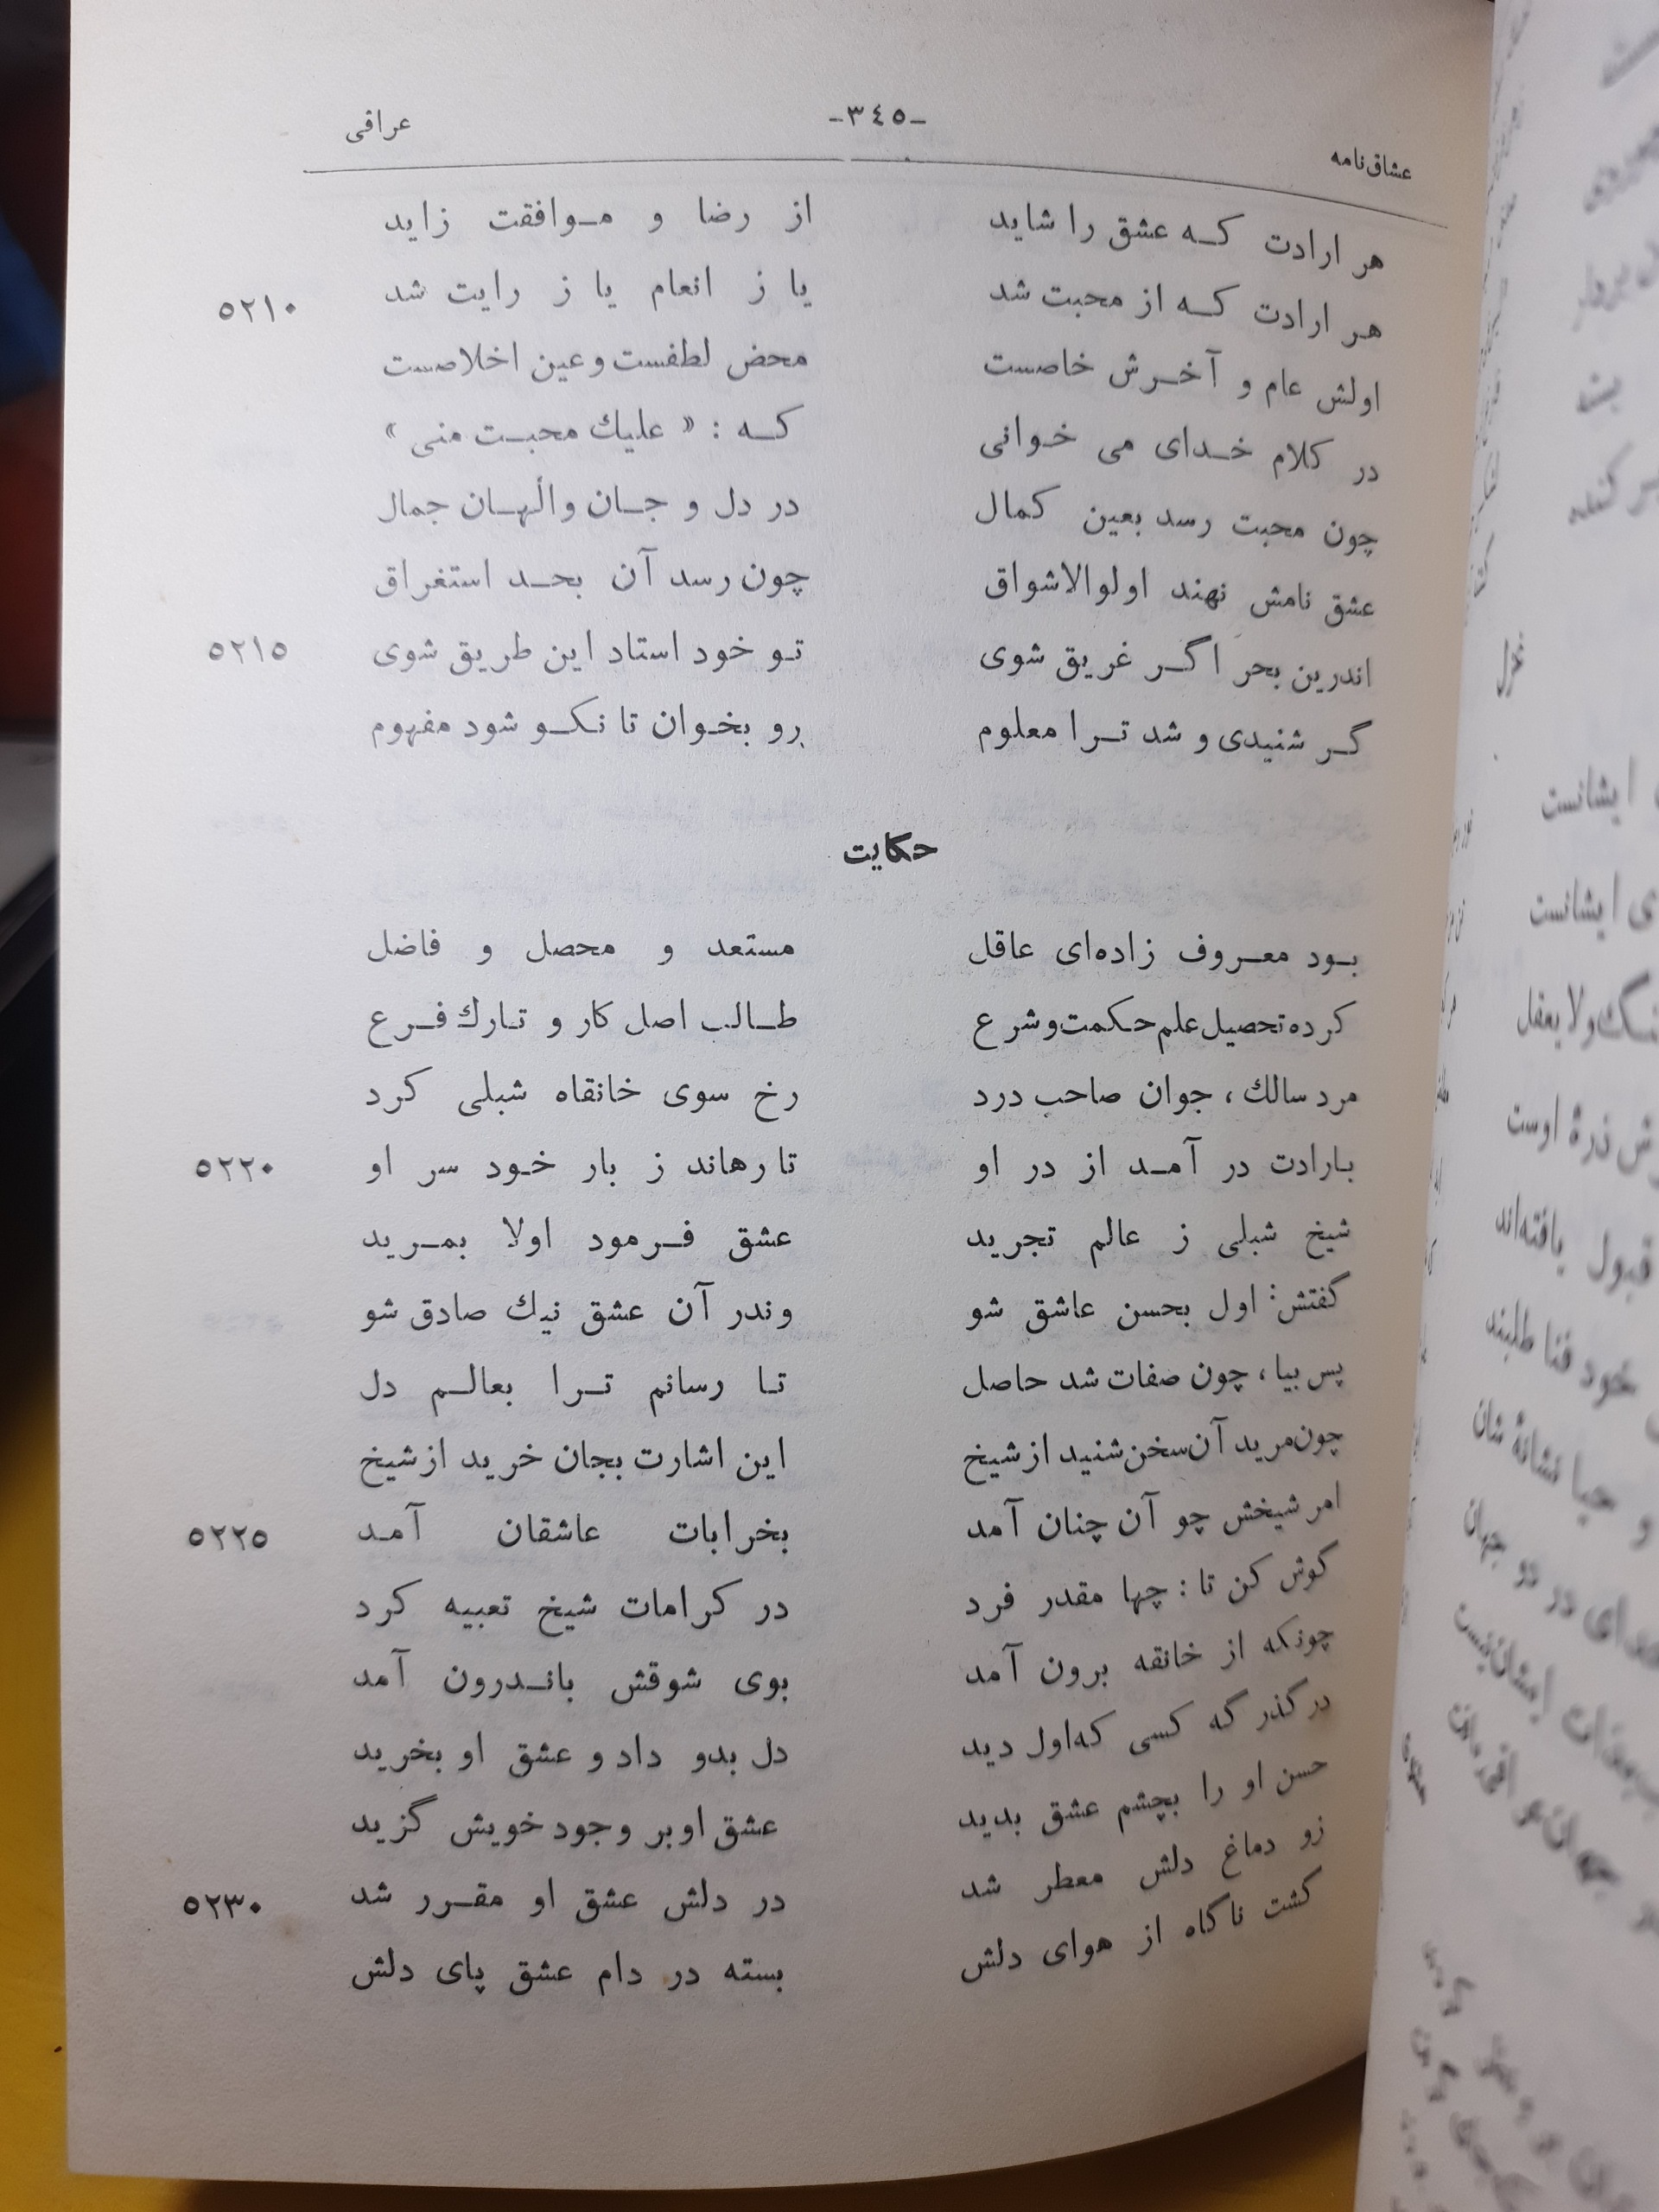 عشاق‌نامه -٣٤٥- عراقی
هر ارادت که عشق را شاید از رضا و موافقت زاید
هر ارادت که از محبت شد یا ز انعام یا ز رایت شد ٥٢١٠
اولش عام و آخرش خاصست محض لطفست و عین اخلاصست
در کلام خدای می خوانی که : « علیك محبت منی »
چون محبت رسد بعین کمال در دل و جان والهان جمال
عشق نامش نهند اولوالاشواق چون رسد آن بحد استغراق
اندرین بحر اگر غریق شوی تو خود استاد این طریق شوی ٥٢١٥
گر شنیدی و شد ترا معلوم رو بخوان تا نکو شود مفهوم
حکایت
بود معروف زاده‌ای عاقل مستعد و محصل و فاضل
کرده تحصیل علم حکمت و شرع طالب اصل کار و تارك فرع
مرد سالك ، جوان صاحب درد رخ سوی خانقاه شبلی کرد
بارادت در آمد از در او تا رهاند ز بار خود سر او ٥٢٢٠
شیخ شبلی ز عالم تجرید عشق فرمود اولا بمرید
گفتش: اول بحسن عاشق شو وندر آن عشق نیك صادق شو
پس بیا ، چون صفات شد حاصل تا رسانم ترا بعالم دل
چون مرید آن سخن شنید از شیخ این اشارت بجان خرید از شیخ
امر شیخش چو آن چنان آمد بخرابات عاشقان آمد ٥٢٢٥
گوش کن تا : چها مقدر فرد در کرامات شیخ تعبیه کرد
چونکه از خانقه برون آمد بوی شوقش باندرون آمد
در گذر گه کسی که اول دید دل بدو داد و عشق او بخرید
حسن او را بچشم عشق بدید عشق او بر وجود خویش گزید
زو دماغ دلش معطر شد در دلش عشق او مقرر شد ٥٢٣٠
گشت ناگاه از هوای دلش بسته در دام عشق پای دلش
غزل
ایشانست
ایشانست
ولا یعقل
ذرۀ اوست
قبول یافته‌اند
خود فنا طلبند
و حیا نشانۀ شان
در دو جهان